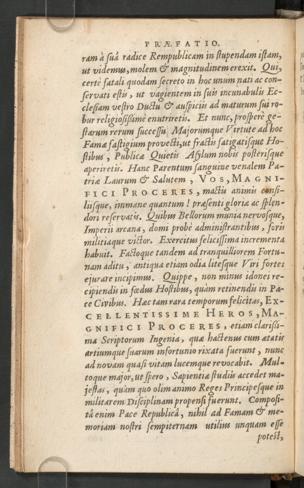 PRÆFATIO.
ram à suâ radice Rempublicam in stupendam istam,
ut videmus, molem & magnitudinem erexit. Qui,
certè fatali quodam secreto in hoc unum nati ac con-
servati estis, ut vagientem in suis incunabulis Ec-
clesiam vestro Ductu & auspiciis ad maturum sui ro-
bur religiosissimè enutriretis. Et nunc, prosperè ge-
starum rerum successu, Majorumque Virtute ad hoc
Famæ fastigium provecti, ut fractis fatigatisque Ho-
stibus, Publicæ Quietis Asylum nobis posterisque
aperiretis. Hanc Parentum sanguine venalem Pa-
triæ Laurum & Salutem, VOS, MAGNI-
FICI PROCERES, mactis animis consi-
liisque, immane quantum! præsenti gloriæ ac splen-
dori reservatis. Quibus Bellorum munia nervosque,
Imperii arcana, domi probè administrantibus, foris
militiaque victor. Exercitus felicissima incrementa
habuit. Factoque tandem ad tranquilliorem Fortu-
nam aditu, antiqua etiam odia litesque Viri fortes
ejurare incipimus. Quippe, non minus idonei re-
cipiendis in fœdus Hostibus, quàm retinendis in Pa-
ce Civibus. Hac tam rara temporum felicitas, EX-
CELLENTISSIME HEROS, MA-
GNIFICI PROCERES, etiam clarissi-
ma Scriptorum Ingenia, quæ hactenus cum ætatis
artiumque suarum infortunio rixata fuerunt, nunc
ad novam quasi vitam lucemque revocabit. Mul-
toque major, ut spero, Sapientiæ studiis accedet ma-
jestas, quàm quo olim animo Reges Principesque in
militarem Disciplinam propensi fuerunt. Composi-
tâ enim Pace Republicâ, nihil ad Famam & me-
moriam nostri sempiternam utilius unquam esse
potest,